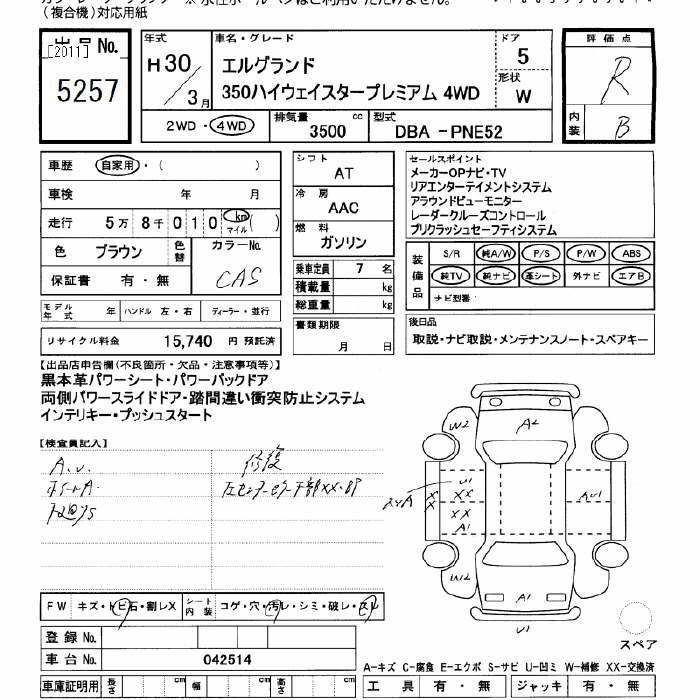 (複合機)対応用紙
出品 No.
[2011]
5257
年式
H30/3月
車名・グレード
エルグランド
350ハイウェイスタープレミアム 4WD
ドア
5
形状
W
評価点
R
内装
B
2WD・4WD
排気量
3500 cc
型式
DBA -PNE52
車歴 自家用・( )
車検 年 月
走行 5万 8千 0 1 0 km マイル ( )
色 ブラウン 色替 カラーNo.
CAS
保証書 有・無
シフト
AT
冷房
AAC
燃料
ガソリン
乗車定員 7 名
積載量 kg
総重量 kg
書類期限
月 日
セールスポイント
メーカーOPナビ・TV
リアエンターテイメントシステム
アラウンドビューモニター
レーダークルーズコントロール
プリクラッシュセーフティシステム
装備品
S/R 純A/W P/S P/W ABS
純TV 純ナビ 革シート 外ナビ エアB
ナビ型番:
モデル年式 年 ハンドル 左・右 ディーラー・並行
リサイクル料金 15,740 円 預託済
後日品
取説・ナビ取説・メンテナンスノート・スペアキー
【出品店申告欄(不良箇所・欠品・注意事項等)】
黒本革パワーシート・パワーバックドア
両側パワースライドドア・踏間違い衝突防止システム
インテリキー・プッシュスタート
【検査員記入】
A.U.
修復
左センターピラー下部XX・
W2
A2
U1
XX
XX
XX
A1
AU1
W2
A1
U1
スペア
FW キズ・トビ石・割レX シート内装 コゲ・穴・汚レ・シミ・破レ・スレ
登録 No.
車台 No. 042514
A-キズ C-腐食 E-エクボ S-サビ U-凹ミ W-補修 XX-交換済
車庫証明用 長さ cm 幅 cm 高さ cm
工具 有・無 ジャッキ 有・無